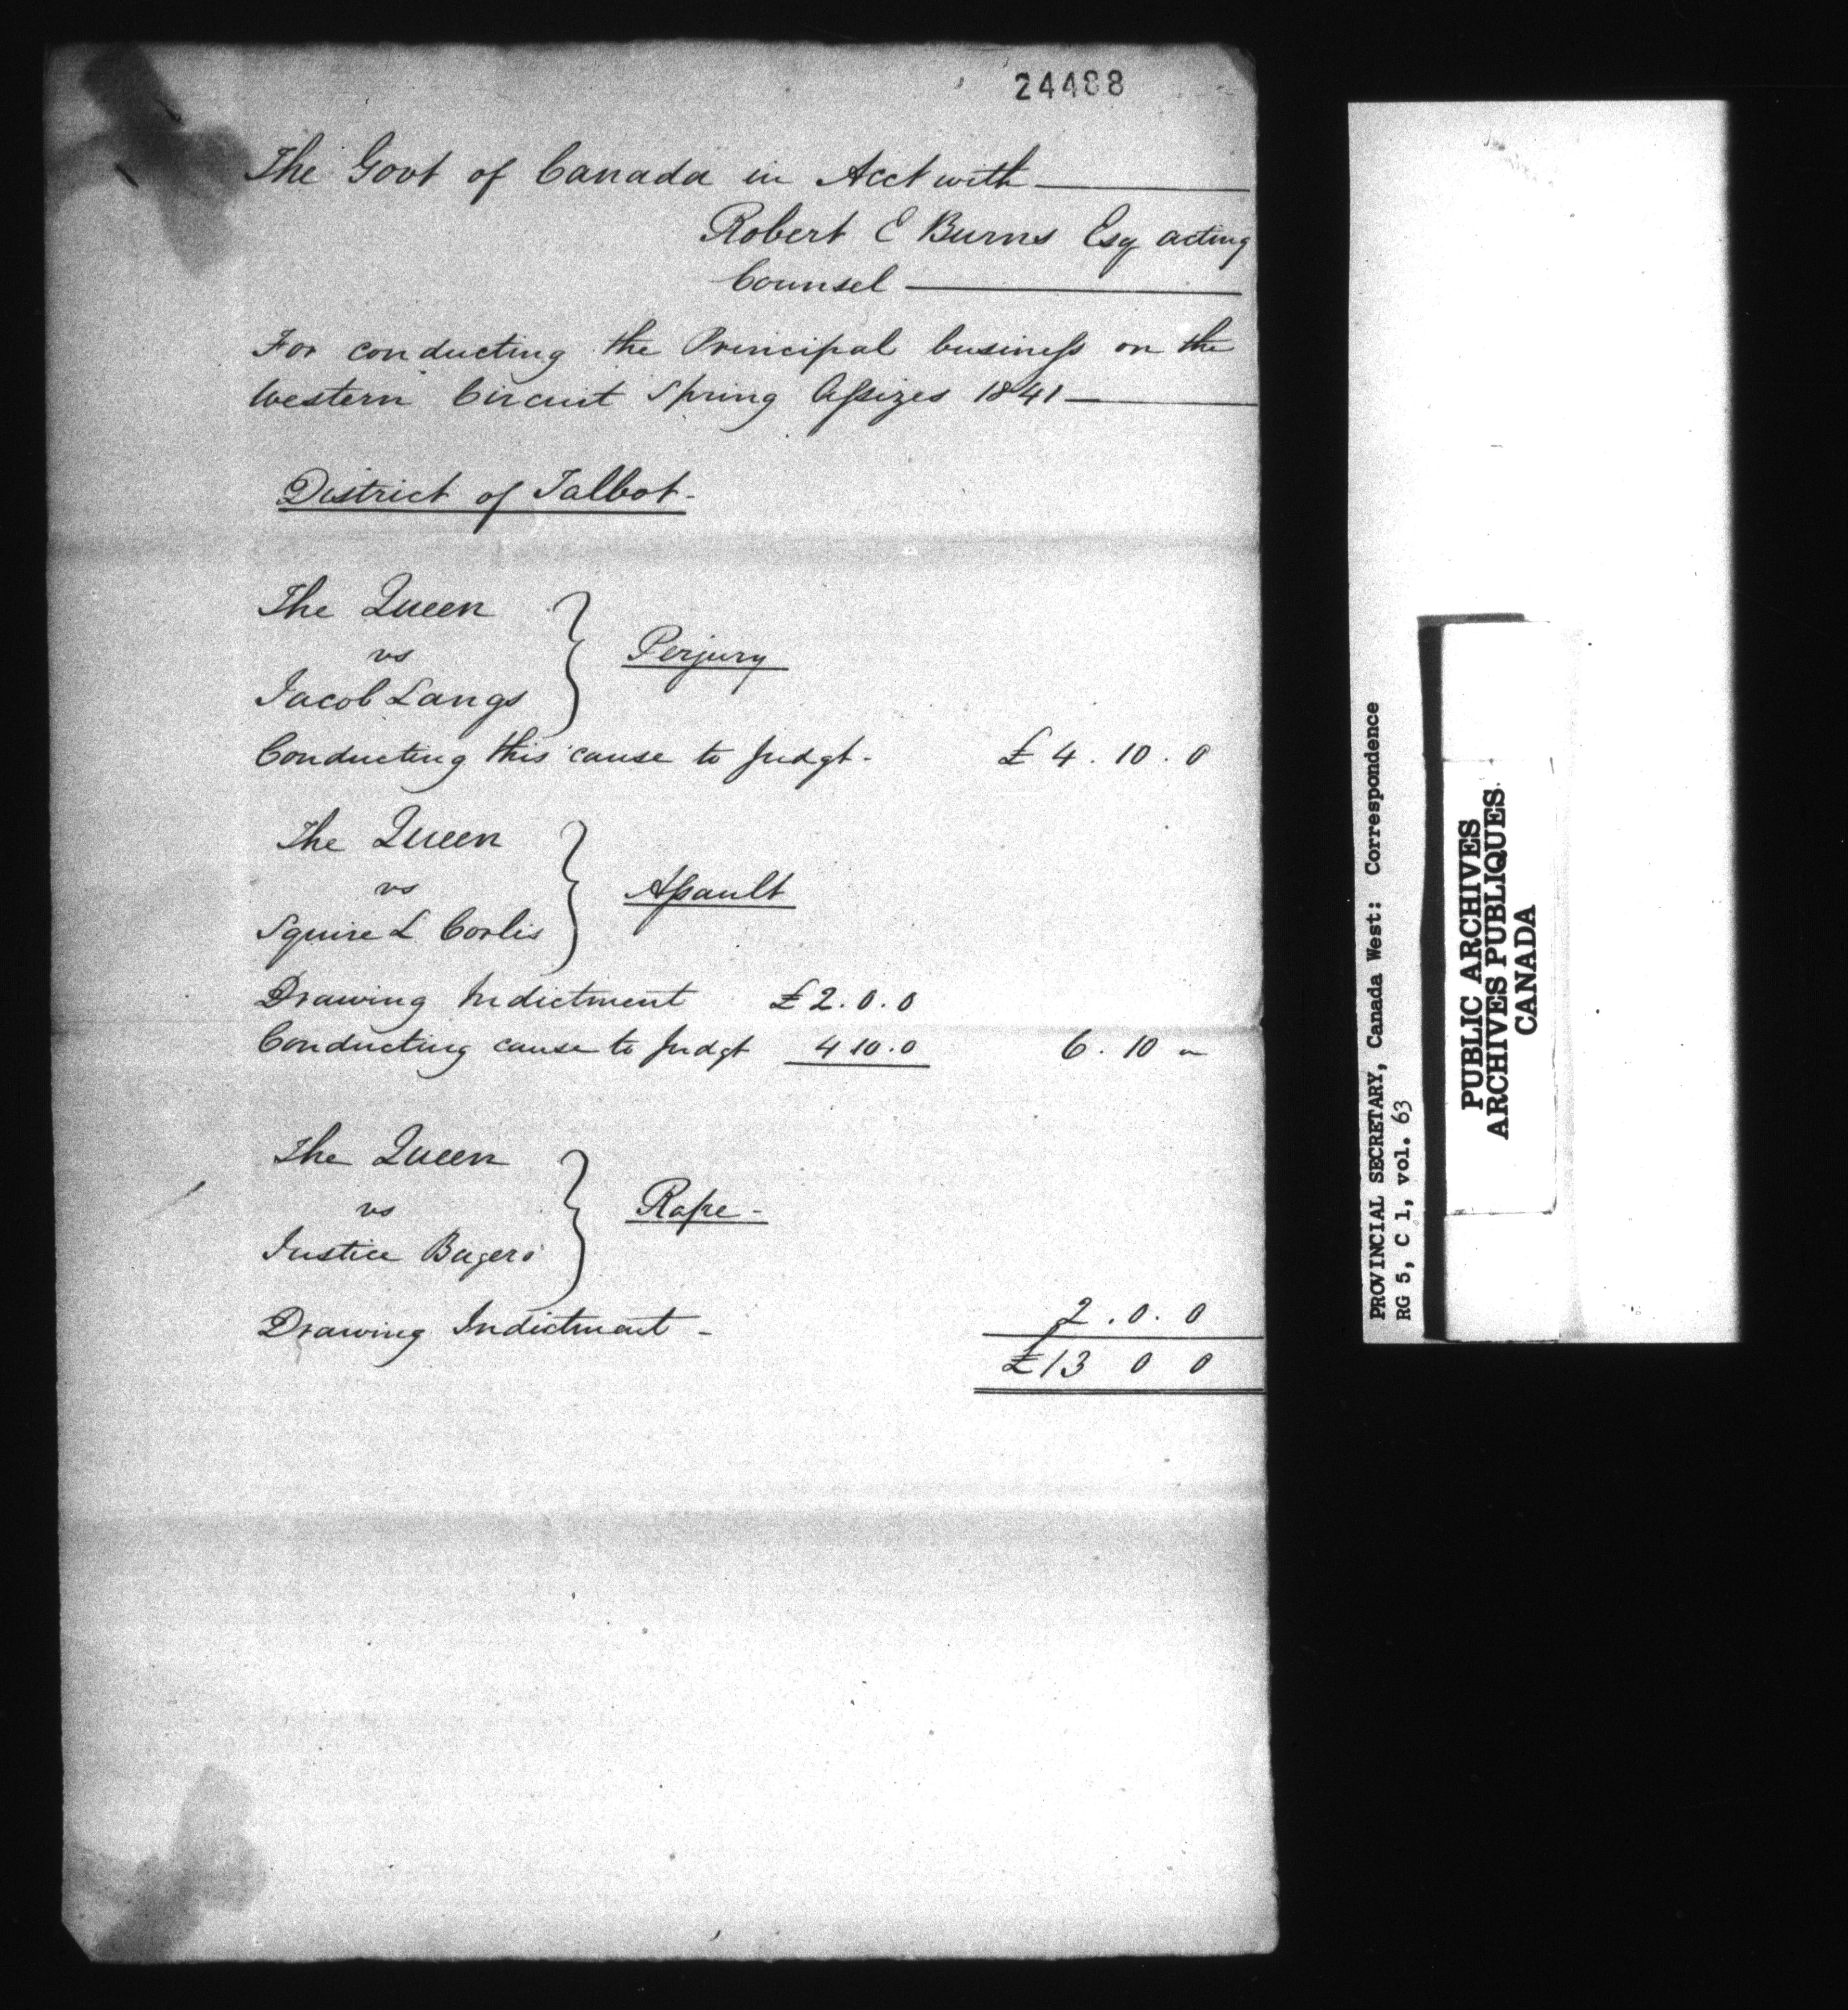 24488
The Govt of Canada in Acct with
Robert E Burns Esq acting
Counsel
For conducting the Principal business on the
Western Circuit Spring Assizes 1841
District of Talbot-
The Queen
vs
Jacob Langs
Perjury
Conducting this cause to Judgt- £ 4. 10. 0
The Queen
vs
Squire L Corlis
Assault
Drawing Indictment £2.0.0
Conducting cause to Judgt 4 10.0 6. 10 "
The Queen
vs
Justice
Rape-
Drawing Indictment- 2.0.0
£13 0 0
PROVINCIAL SECRETARY, Canada West: Correspondence
RG 5, C 1, vol. 63
PUBLIC ARCHIVES
ARCHIVES PUBLIQUES
CANADA